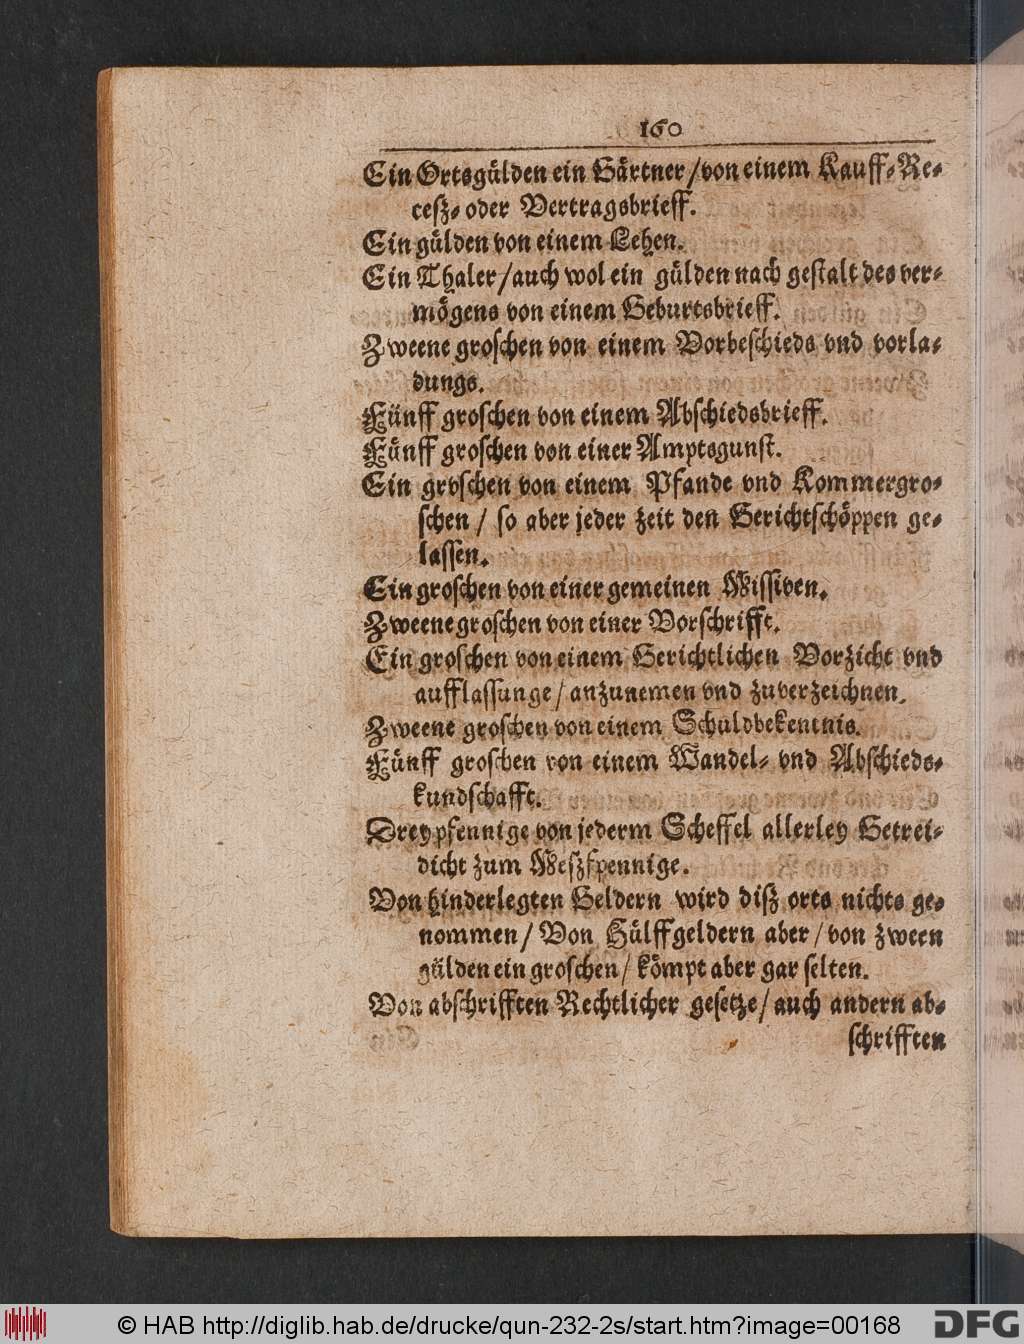 160
Ein Ortsgülden ein Gärtner / von einem Kauff-Re-
cesz- oder Vertragsbrieff.
Ein gülden von einem Lehen.
Ein Thaler / auch wol ein gülden nach gestalt des ver-
mögens von einem Geburtsbrieff.
Zweene groschen von einem Vorbeschieds vnd vorla-
dungs.
Fünff groschen von einem Abschiedsbrieff.
Fünff groschen von einer Amptsgunst.
Ein groschen von einem Pfande vnd Kommergro-
schen / so aber jeder zeit den Gerichtschöppen ge-
lassen.
Ein groschen von einer gemeinen Missiven.
Zweene groschen von einer Vorschrifft.
Ein groschen von einem Gerichtlichen Vorzicht vnd
aufflassunge / anzunemen vnd zuverzeichnen.
Zweene groschen von einem Schuldbekentnis.
Fünff groschen von einem Wandel- vnd Abschieds-
kundschafft.
Drey pfennige von jederm Scheffel allerley Getrei-
dicht zum Meszfpennige.
Von hinderlegten Geldern wird disz orts nichts ge-
nommen / Von Hülffgeldern aber / von zween
gülden ein groschen / kömpt aber gar selten.
Von abschrifften Rechtlicher gesetze / auch andern ab-
schrifften
© HAB http://diglib.hab.de/drucke/qun-232-2s/start.htm?image=00168
DFG